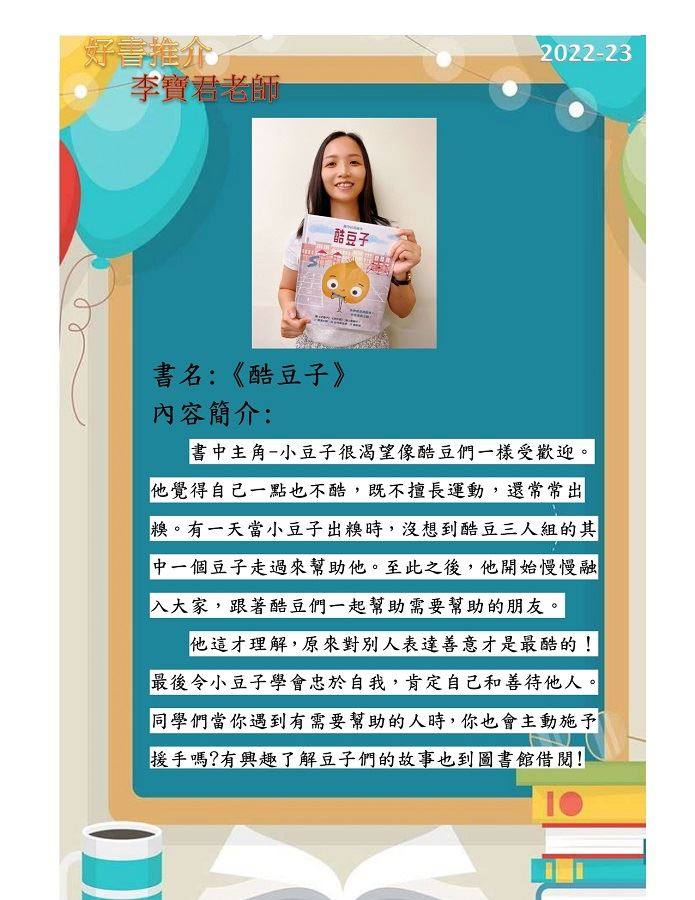 好書推介
2022-23
李寶君老師
酷豆子
書名:《酷豆子》
內容簡介:
書中主角-小豆子很渴望像酷豆們一樣受歡迎。
他覺得自己一點也不酷，既不擅長運動，還常常出
糗。有一天當小豆子出糗時，沒想到酷豆三人組的其
中一個豆子走過來幫助他。至此之後，他開始慢慢融
入大家，跟著酷豆們一起幫助需要幫助的朋友。
他這才理解，原來對別人表達善意才是最酷的！
最後令小豆子學會忠於自我，肯定自己和善待他人。
同學們當你遇到有需要幫助的人時，你也會主動施予
援手嗎?有興趣了解豆子們的故事也到圖書館借閱!